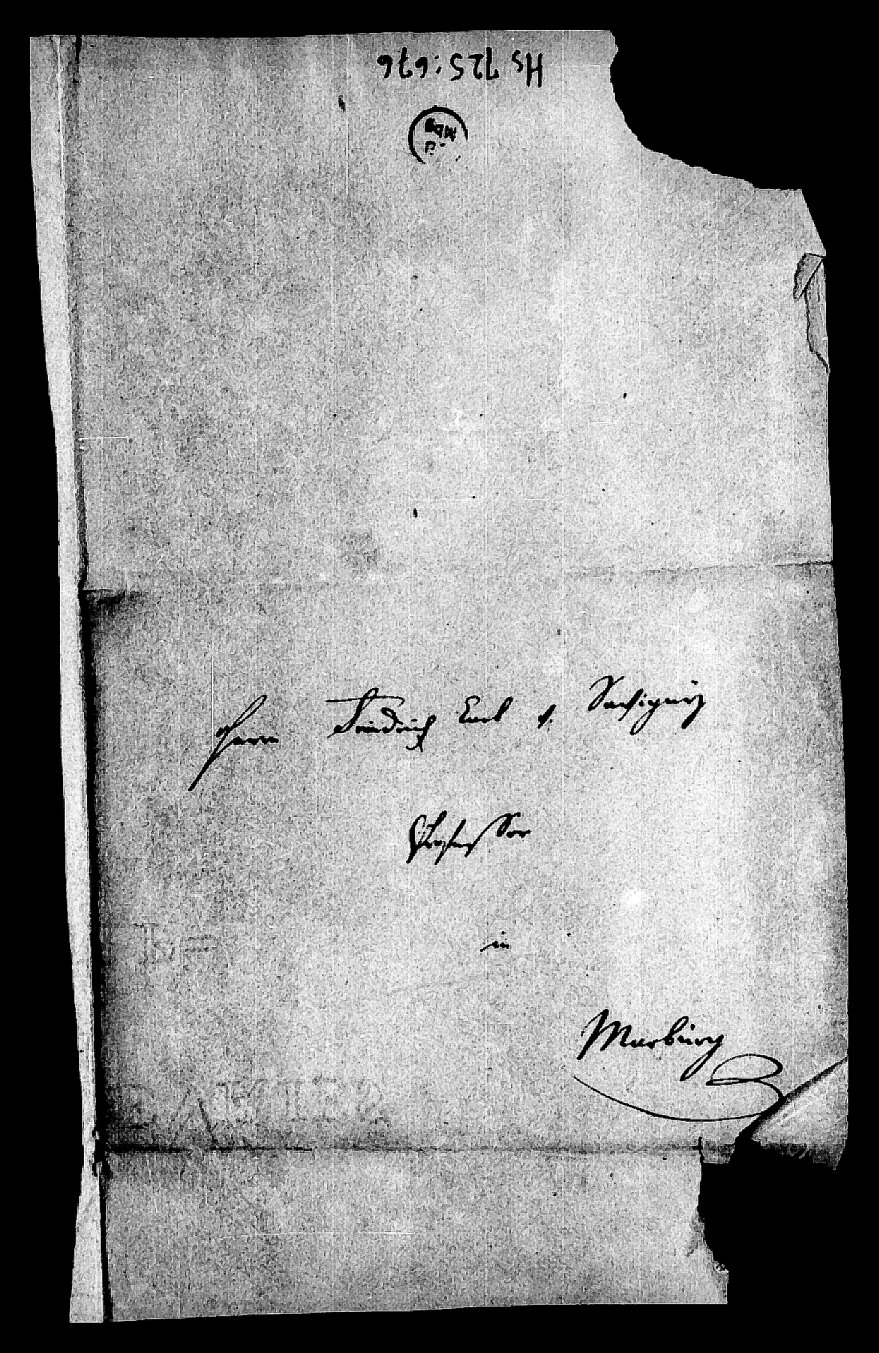 Hs 725:676
Herrn Friedrich Carl v. Savigny
Professor
in
Marburg